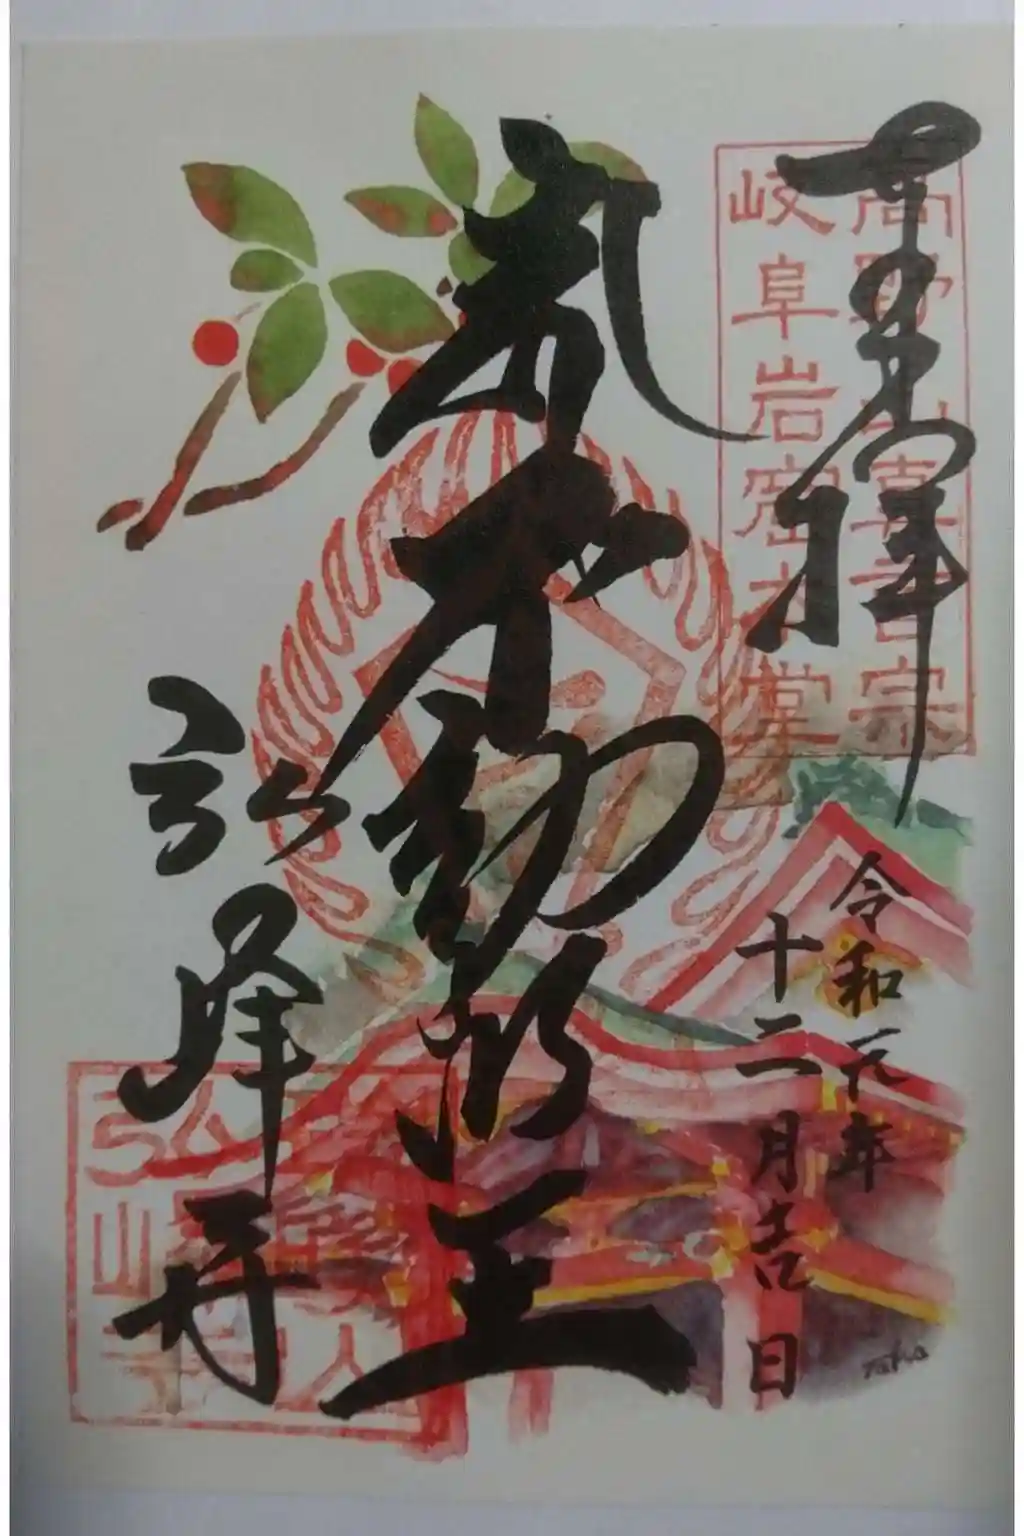 奉拝
高野山真言宗
岐阜岩窟本堂
令和元年
十二月吉日
不動明王
弘峰寺
Taka